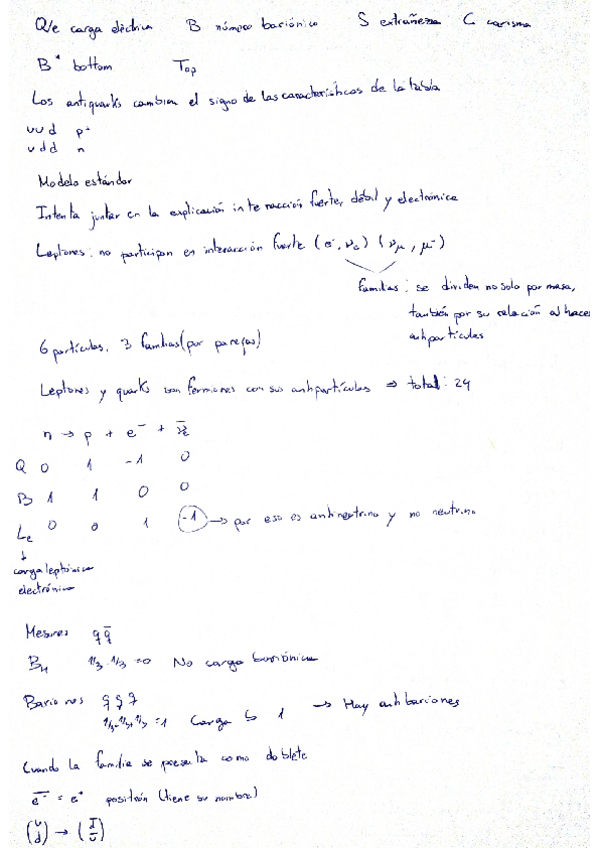 Q/e carga eléctrica B número bariónico S extrañeza C carisma
B* bottom Top
Los antiquarks cambian el signo de las características de la tabla
uud p⁺
udd n
Modelo estándar
Intenta juntar en la explicación interacción fuerte, débil y electrónica
Leptones: no participan en interacción fuerte (e⁻, νe) (νμ, μ⁻)
familias: se dividen no solo por masa,
también por su relación al hacer
antipartículas
6 partículas, 3 familias (por parejas)
Leptones y quarks son fermiones con sus antipartículas ⇒ total: 24
n → p + e⁻ + ν̅e
Q 0 1 -1 0
B 1 1 0 0
Le 0 0 1 -1 → por eso es antineutrino y no neutrino
↓
carga leptónica
electrónica
Mesones q q̅
1/3 - 1/3 = 0 No carga bariónica
Bariones q q q
1/3+1/3+1/3 = 1 Carga b 1 → Hay antibariones
Cuando la familia se presenta como doblete
e̅⁻ = e⁺ positrón (tiene su nombre)
(u d) → (d̅ u̅)